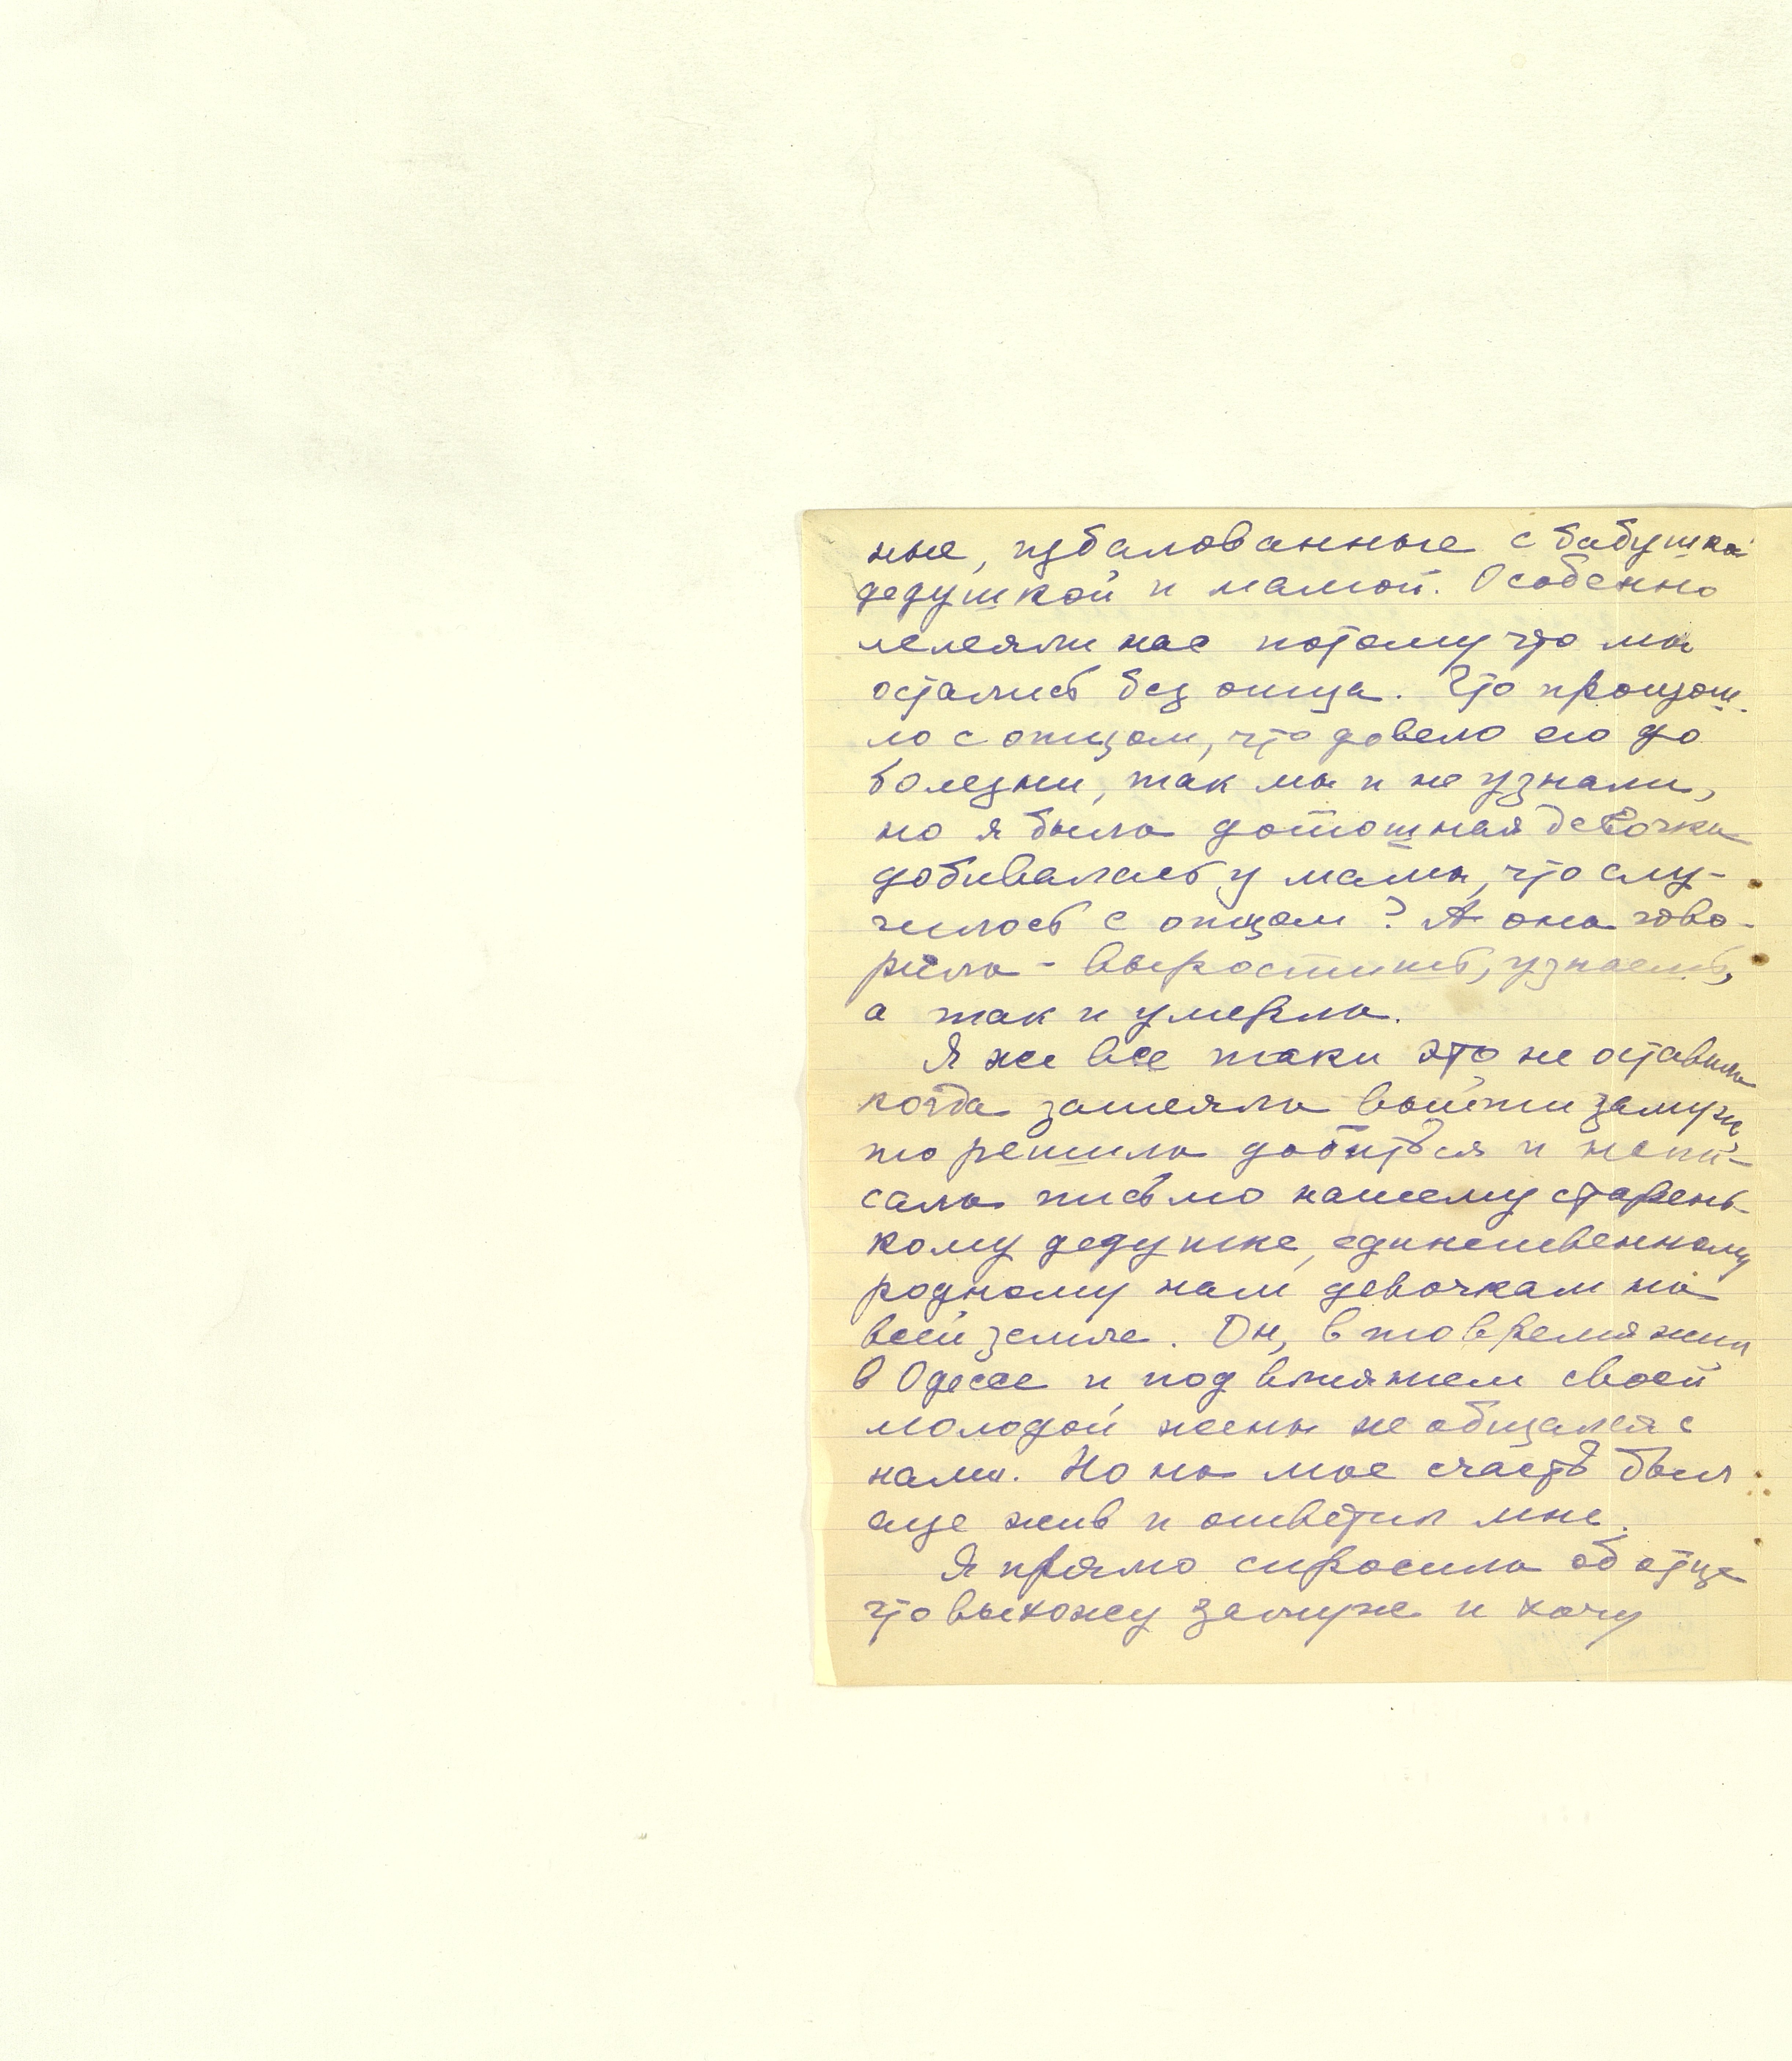 ные, избалованные с бабушкой
дедушкой и мамой. Особенно
лелеяли нас потому что мы
остались без отца. Что произош-
ло с отцом, что довело его до
болезни, так мы и не узнали,
но я была дотошная девочка
добивалась у мамы, что слу-
чилось с отцом? А она гово-
рила - выростишь, узнаешь,
а так и умерла.
Я же все таки это не оставила
когда затеяла выйти замуж,
то решила добиться и напи-
сала письмо нашему старень-
кому дедушке, единственному
родному нам девочкам на
всей земле. Он, в то время жил
в Одессе и под влиянием своей
молодой жены не общался с
нами. Но на мое счасть был
еще жив и ответил мне.
Я прямо спросила об отце
что выхожу замуж и хочу